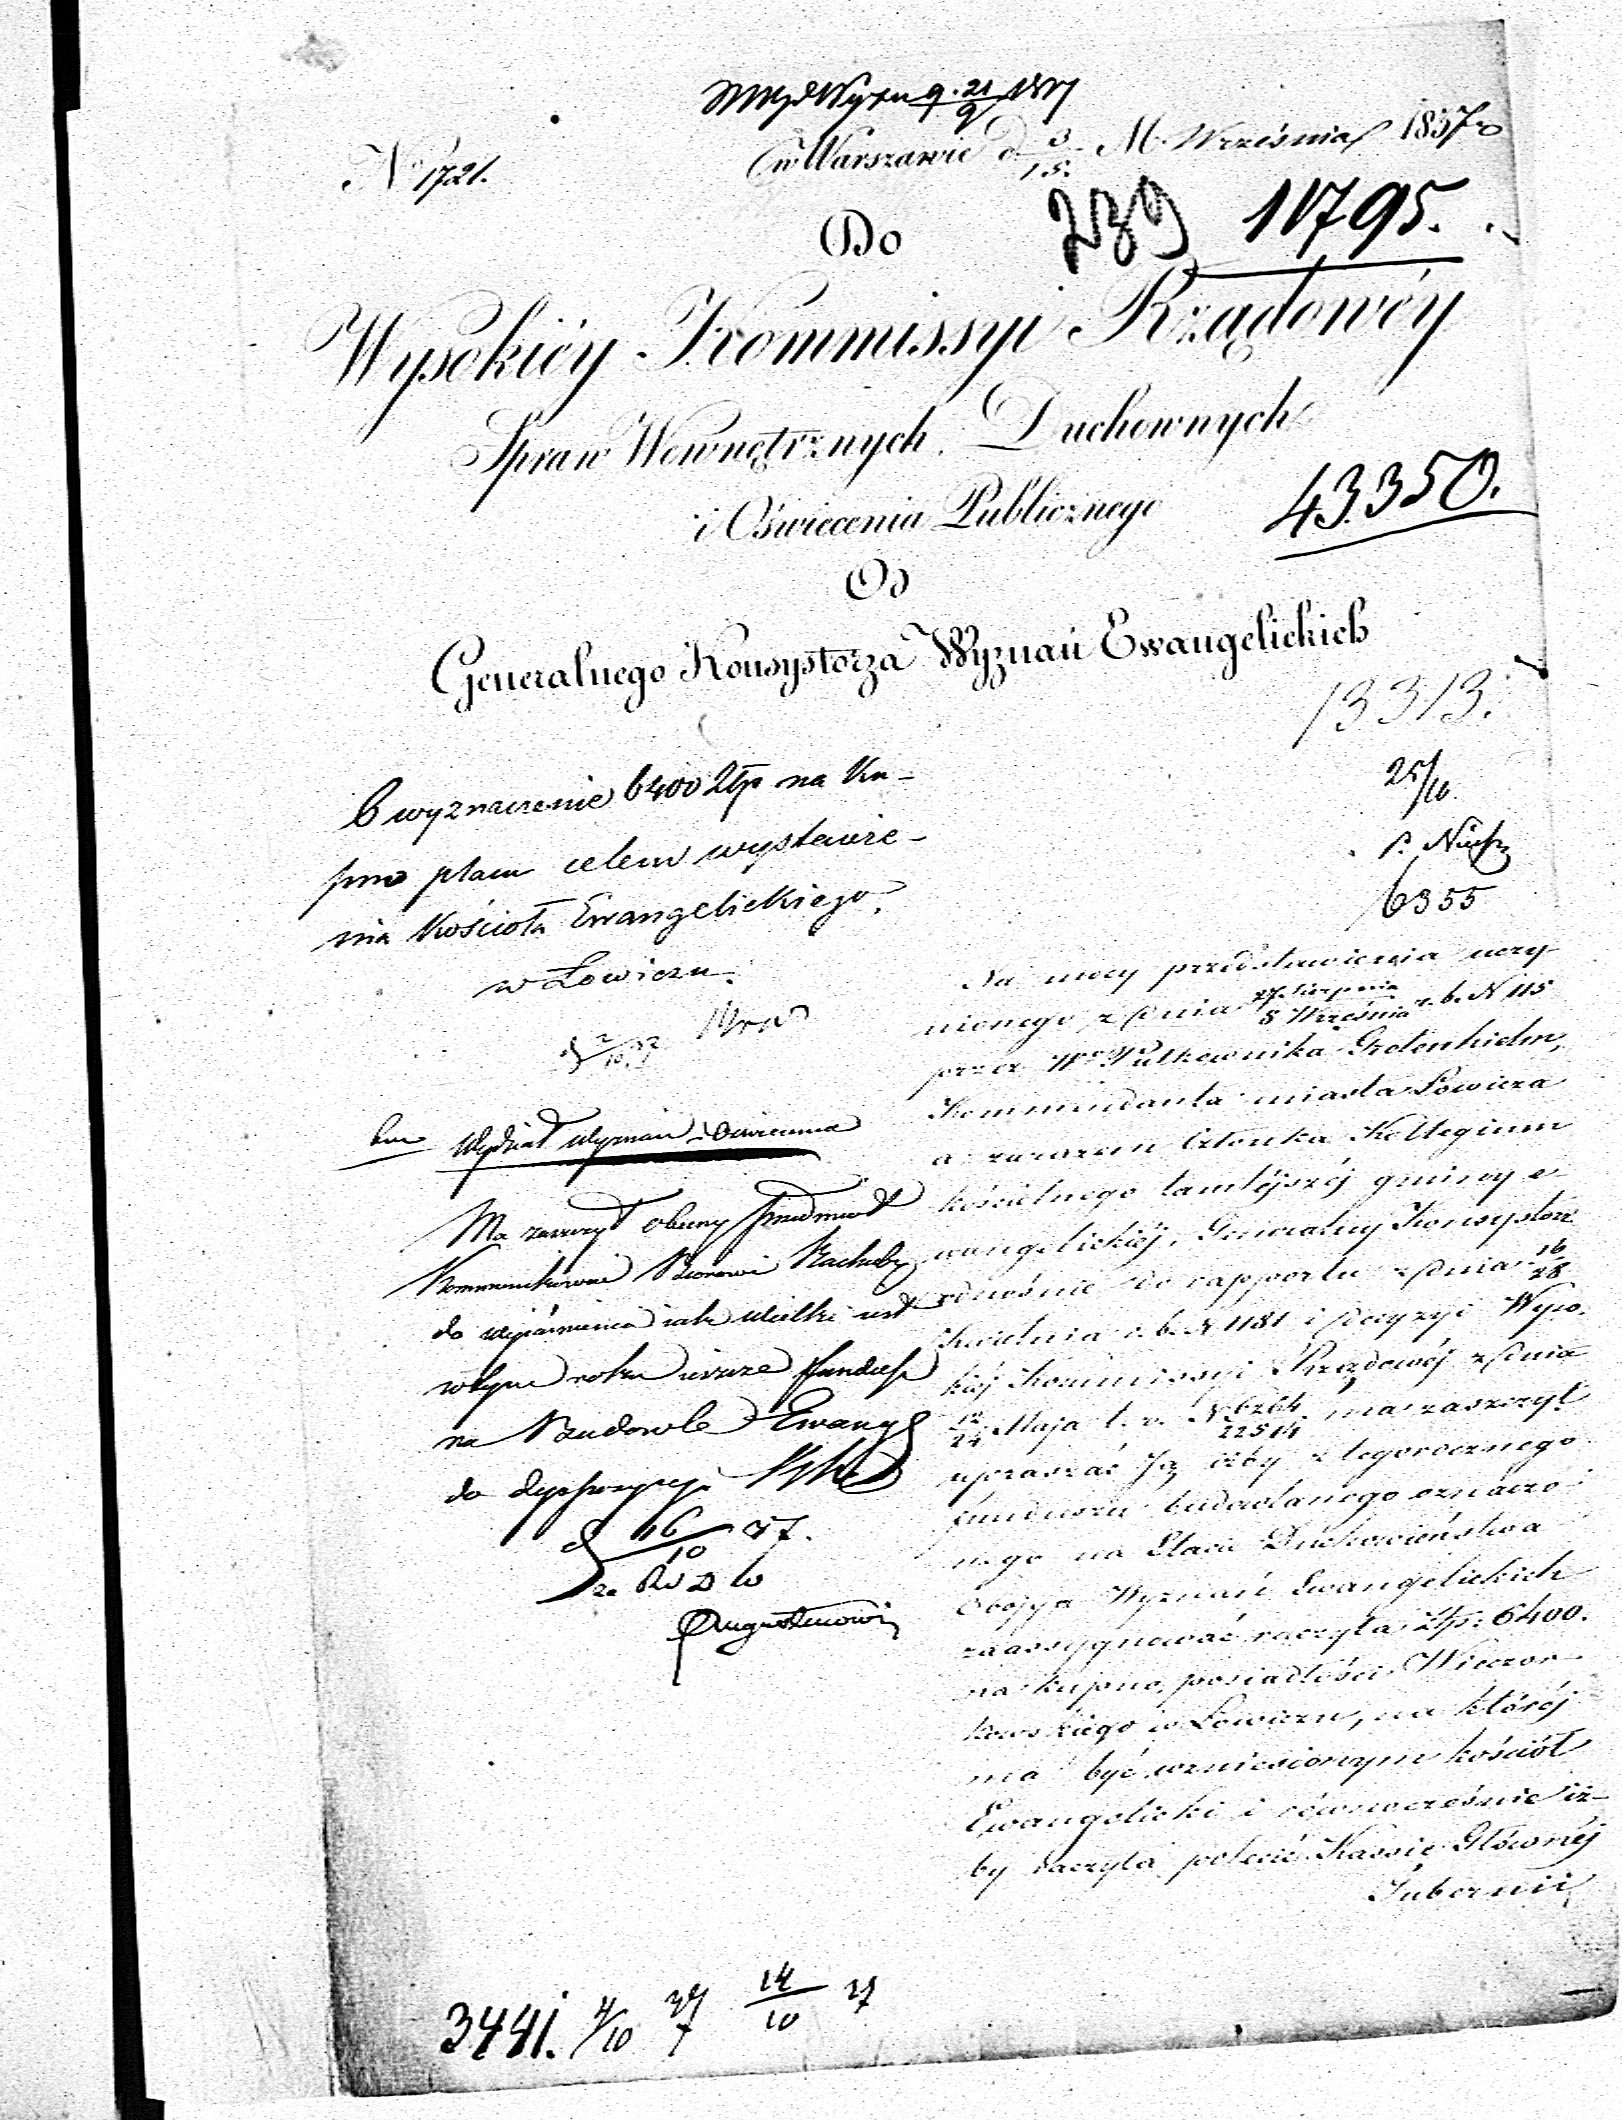 w Warszawie d 3/15. M. Września 1837 r
No 1721.
Do
289 11795.
Wysokiéy Kommissyi Rządowéy
Spraw Wewnętrznych, Duchownych
i Oświecenia Publicznego
43350.
Od
Generalnego Konsystorza Wyznań Ewangelickich
13313.
O wyznaczenie 6400 Złp na Ku-
pno placu celem wystawie-
nia Kościoła Ewangelickiego
w Łowiczu.
25/10
6355
Na mocy przedstawienia uczy
nionego z dnia 27 Sierpnia/8 Września r. b. N 115
przez Wo Pułkownika
Kommendanta miasta Łowicza
a zarazem Członka Kollegium
kościelnego tamtéjszéj gminy e
wangelickiéj, Generalny Konsystorz
odnośnie do rapportu z dnia 16/28
Kwietnia r. b. N 1181 i decyzyi Wyso-
kiéj Kommissyi Rządowéj z dnia
12/24 Maja t. r. N 6264/22514 ma zaszczyt
upraszać Ją iżby z tegorocznego
funduszu budowlanego oznaczo
nego na Etacie Duchowieństwa
obojga Wyznań Ewangelickich
zaassygnować raczyła Złp: 6400.
na kupno posiadłości Wieczor
kowskiego w Łowiczu, na któréj
ma być wzniesionym kościół
Ewangelicki i równocześnie iż-
by raczyła polecić Kassie Głównéj
Gubernii
Wydział Wyznań i Oświecenia
Ma zaszczyt obecny przedmiot
Kommunikować Rachuby
do wyjaśnienia jak wielki jest
w tym roku jeszcze fundusz
na Budowle Ewang
do dyspozycyi
16/10 37.
3441. 4/10 37 14/10 37